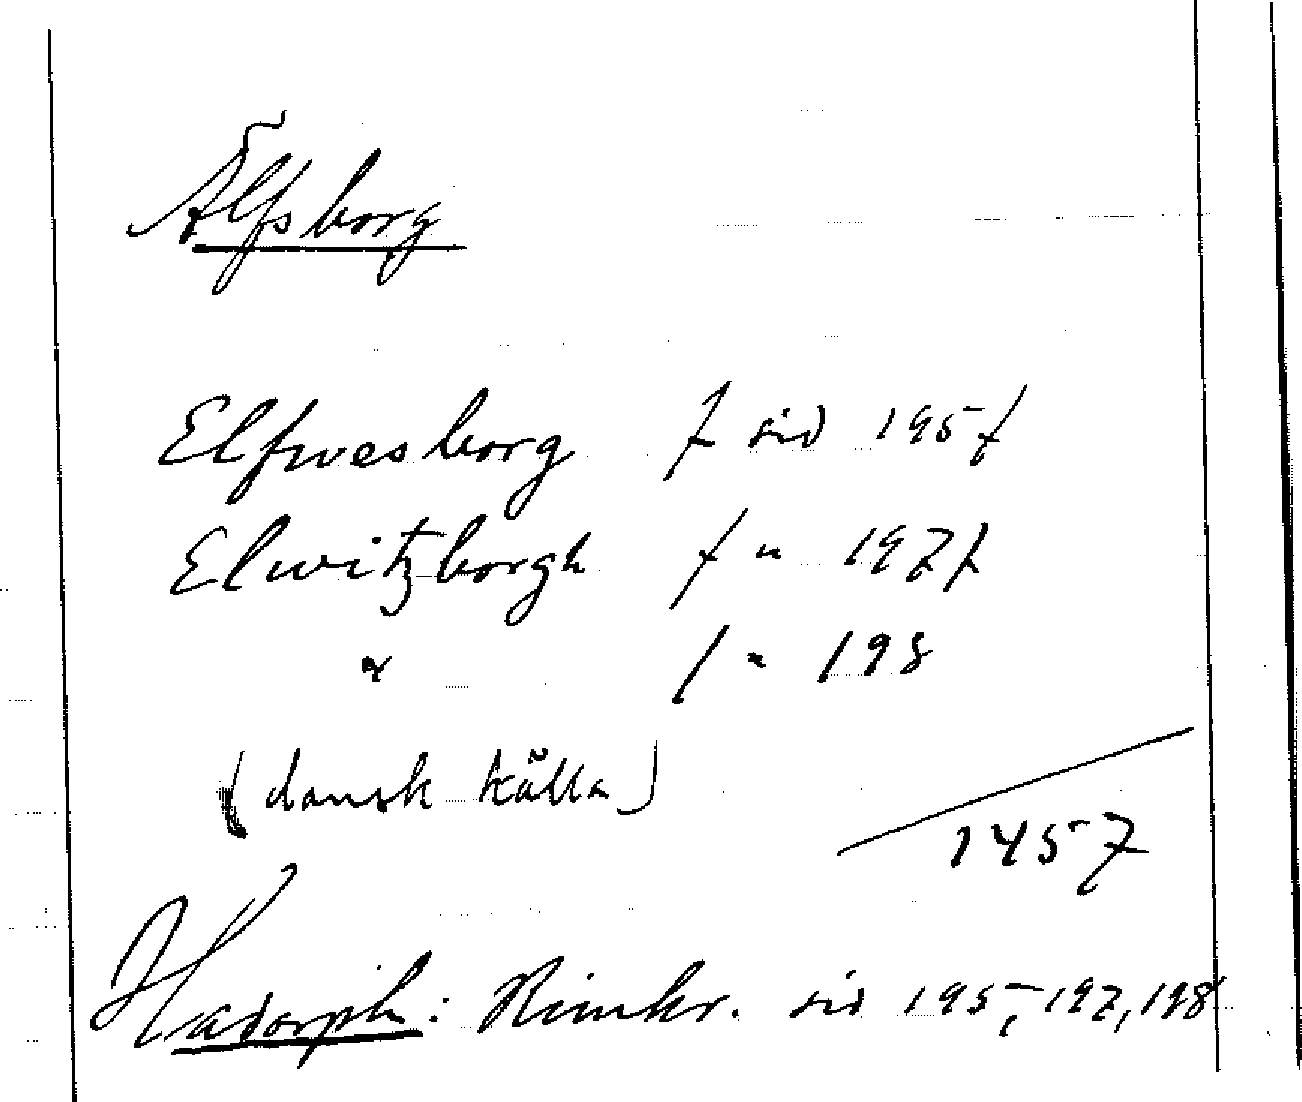 Älfsborg
Elfwesborg f sid 195 f
Elwitzborgh f " 197 f
" f " 198
(dansk källa)
1457
Hadorph: Rimkr. sid 195, 197, 198